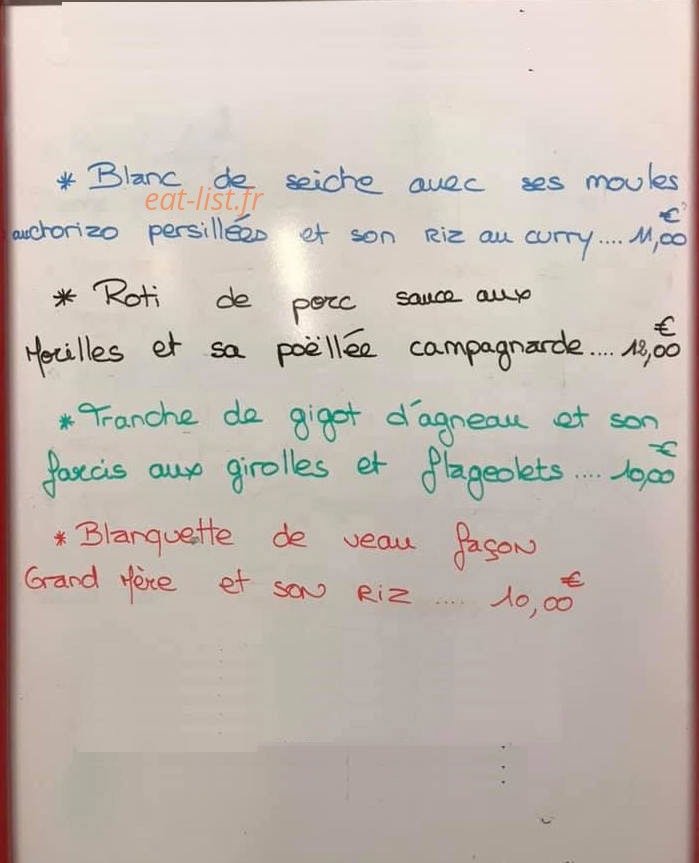 * Blanc de seiche avec ses moules
eat-list.fr
au chorizo persillées et son Riz au curry.... 11,00€
* Roti de porc sauce aux
Morilles et sa poëllée campagnarde.... 12,00€
* Tranche de gigot d'agneau et son
farcis aux girolles et flageolets.... 10,00€
* Blanquette de veau façon
Grand Mère et son Riz .... 10,00€